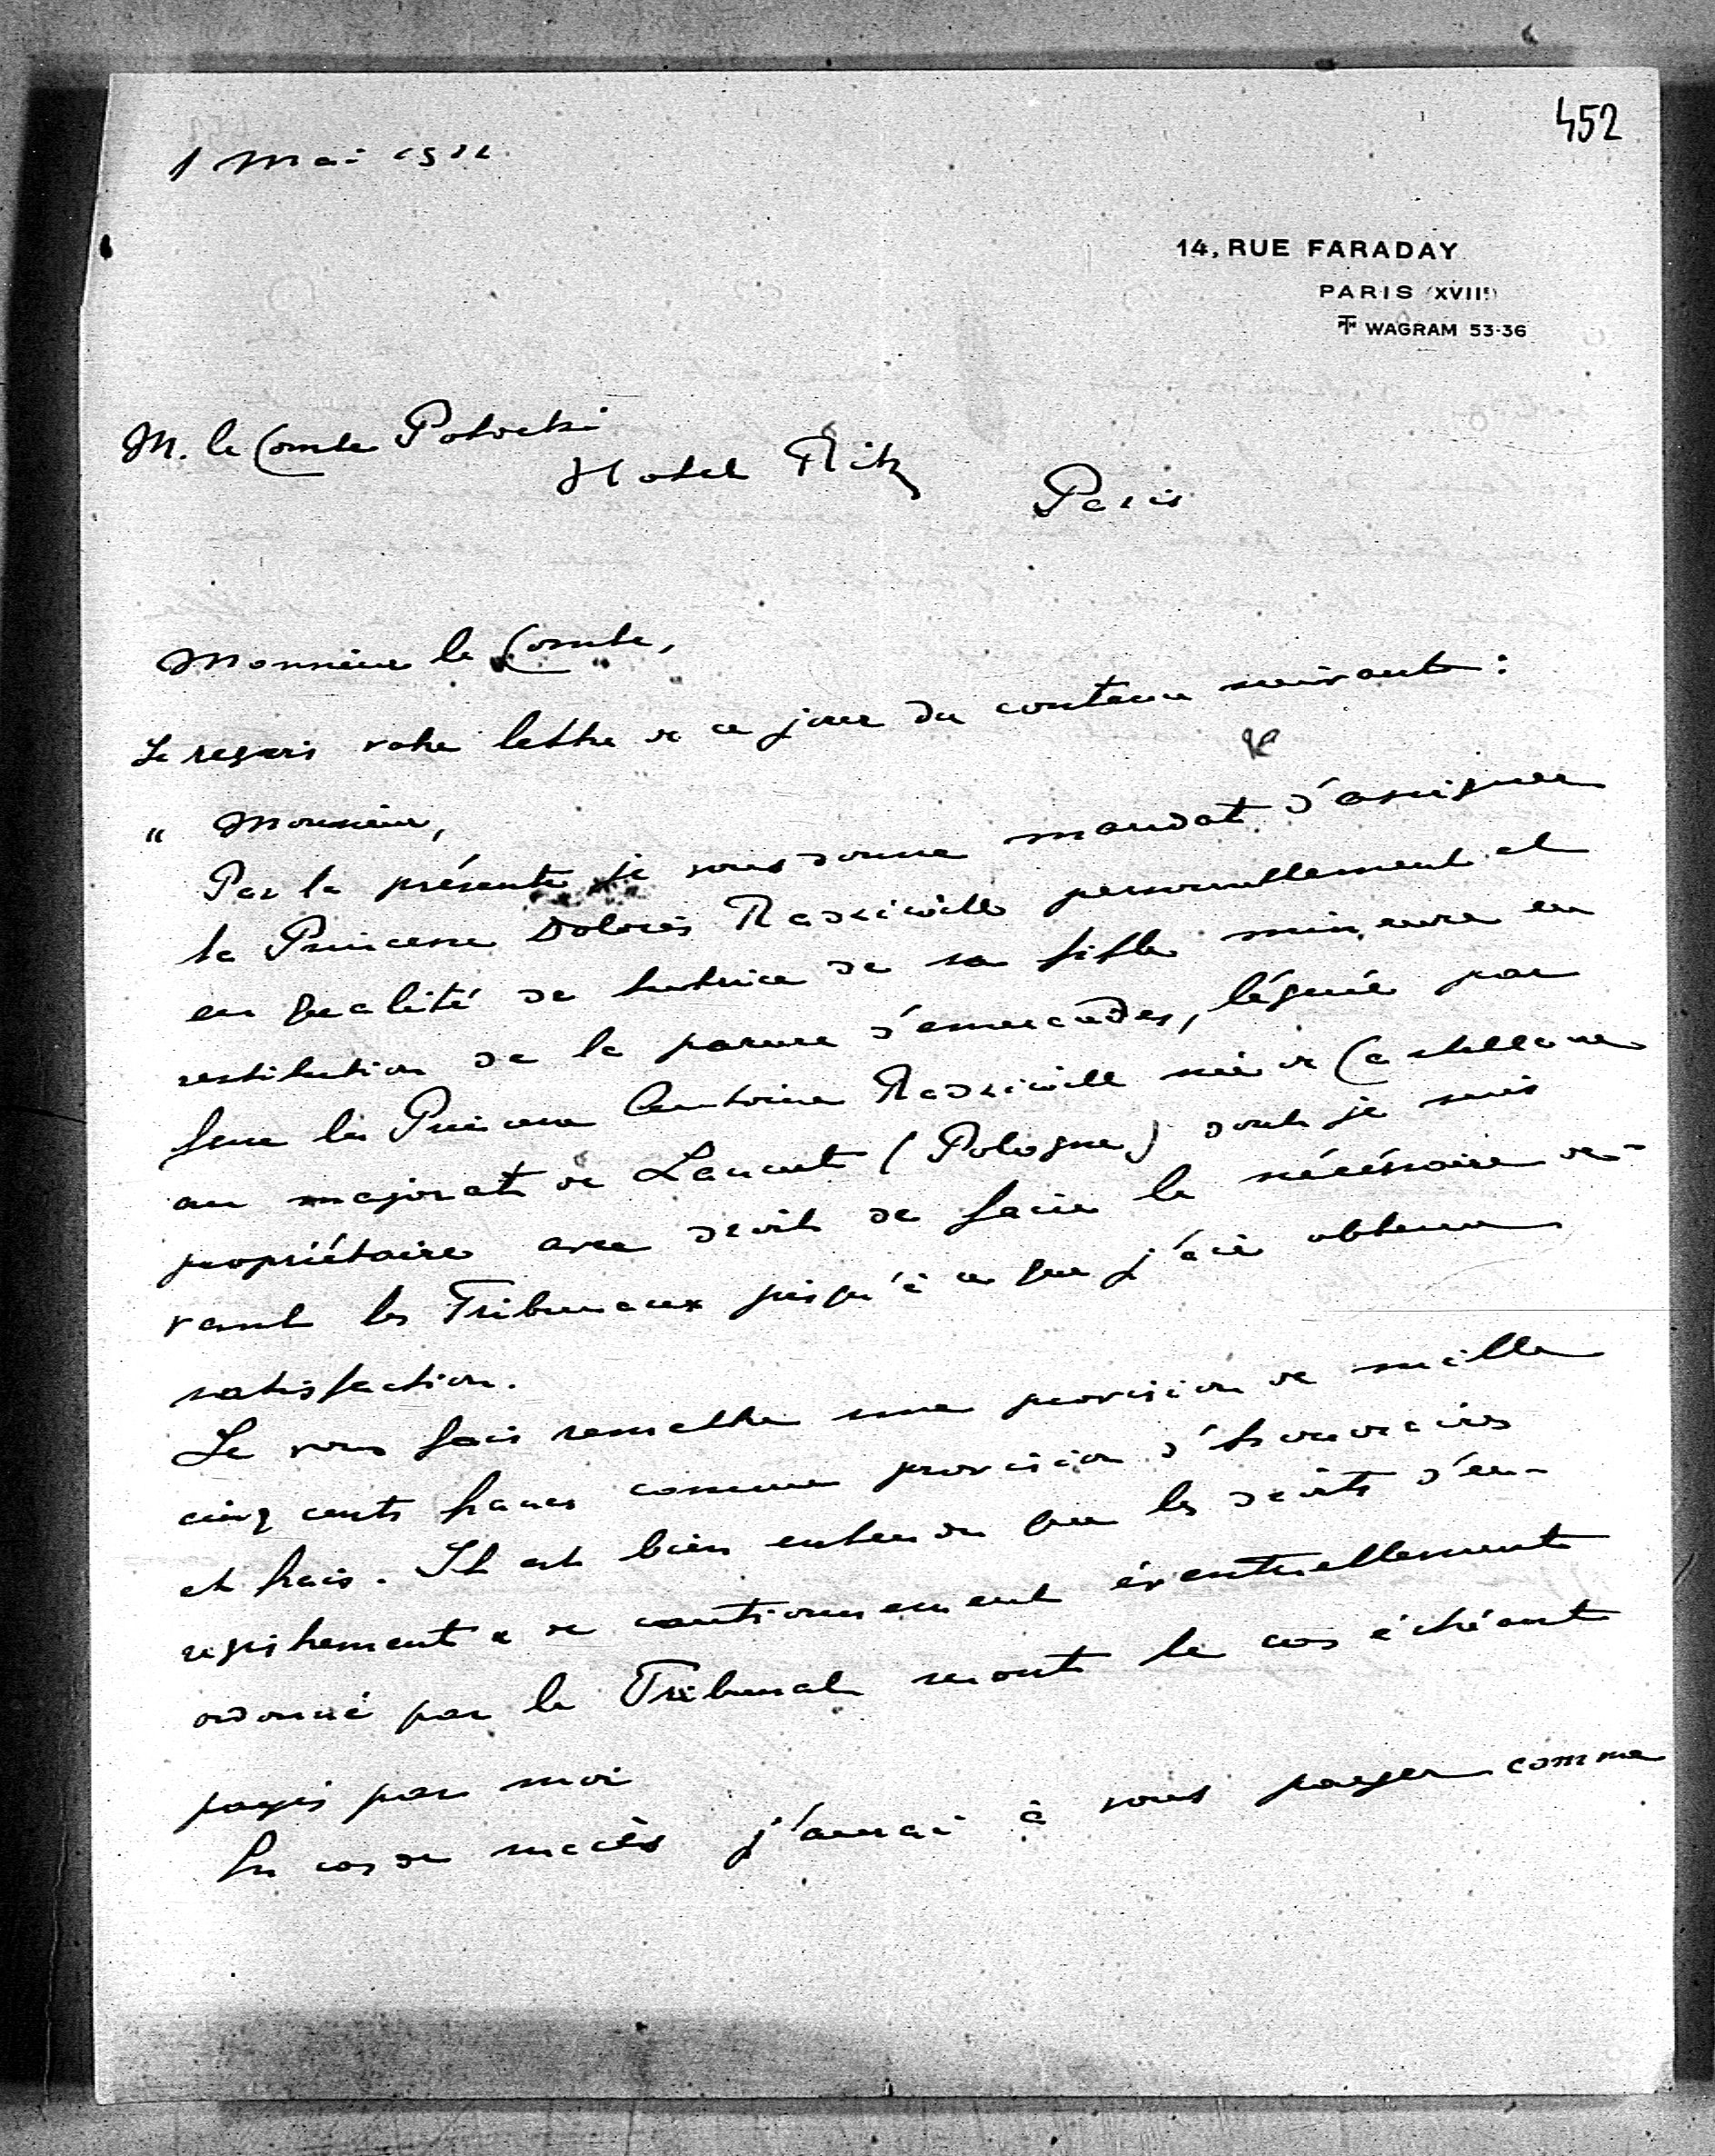 452
1 Mai
14, RUE FARADAY
PARIS (XVIIe)
WAGRAM 53-36
M. le Comte Potocki
Hotel Ritz
Paris
Monsieur le Comte,
Je reçois votre lettre de ce jour du contenu suivant :
" Monsieur,
Par la présente je vous donne mandat d'assigner
la Princesse Dolorès Radziwill personnellement et
en qualité de tutrice de sa fille mineure en
restitution de la parure d'émeraudes, léguée par
feue la Princesse Antoine Radziwill née de Castellane
au majorat de Lancut (Pologne) dont je suis
propriétaire avec droit de faire le nécéssaire de-
vant les Tribunaux jusqu'à ce que j'aie obtenu
satisfaction.
Je vous fais remettre une provision de mille
cinq cents francs comme provision d'honoraires
et frais. Il est bien entendu que les droits d'en-
registrement & de cautionnement éventuellement
ordonné par le Tribunal seront le cas échéant
payés par moi
En cas de succès j'aurai à vous payer comme